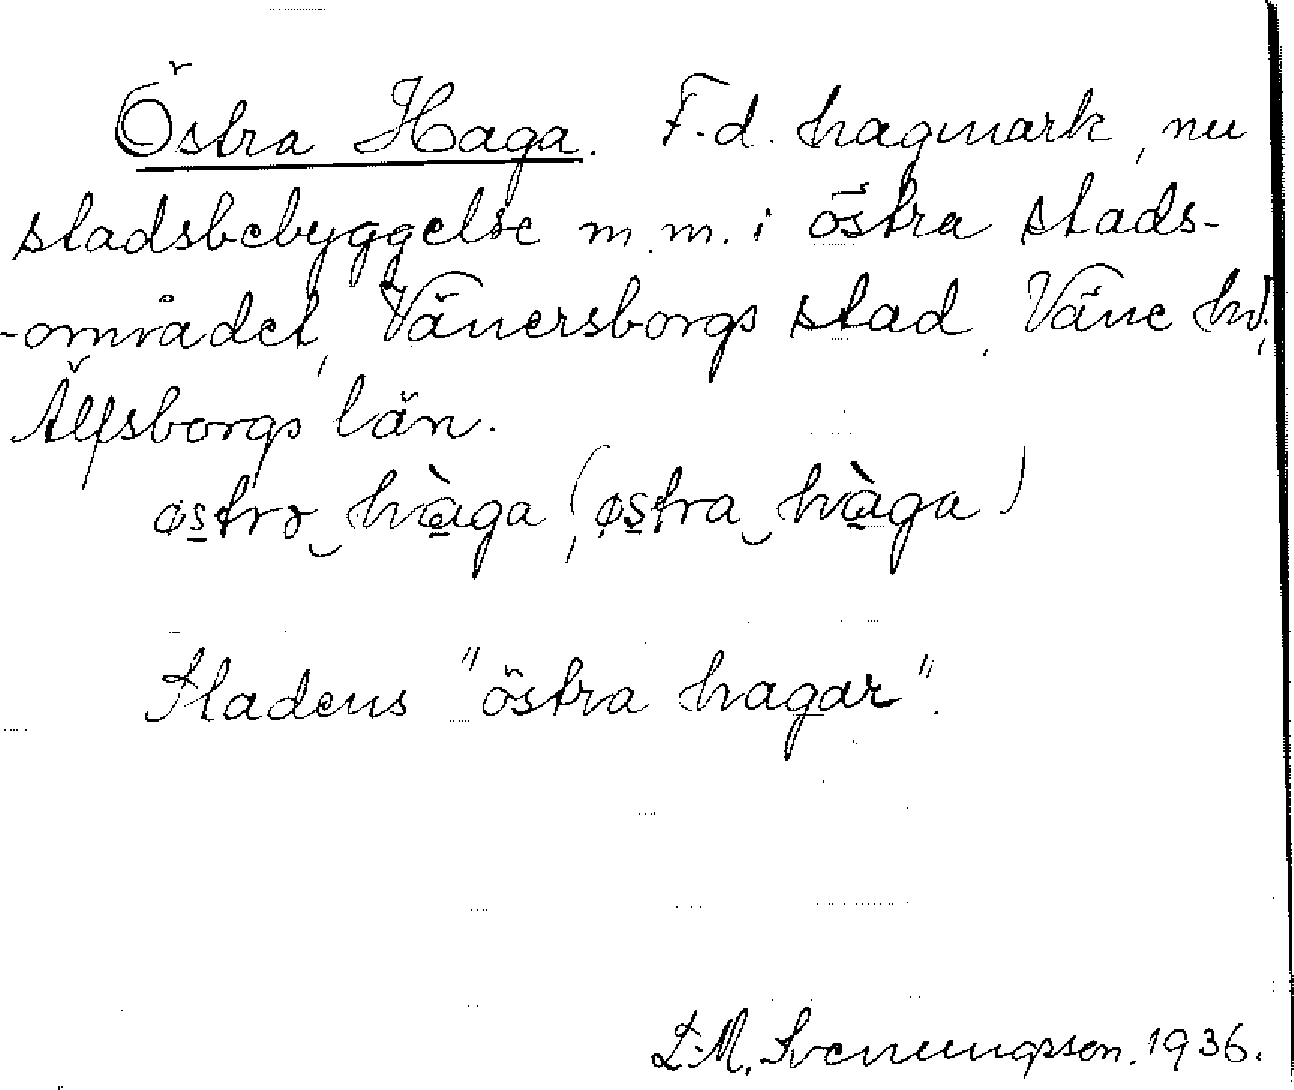 Östra Haga. F.d. hagmark, nu
stadsbebyggelse m.m. i östra stads-
-området, Vänersborgs stad, Väne hd,
Älfsborgs län.
østrə hàga (østra hàga)
Stadens "östra hagar".
L.M. Svenungsson. 1936.